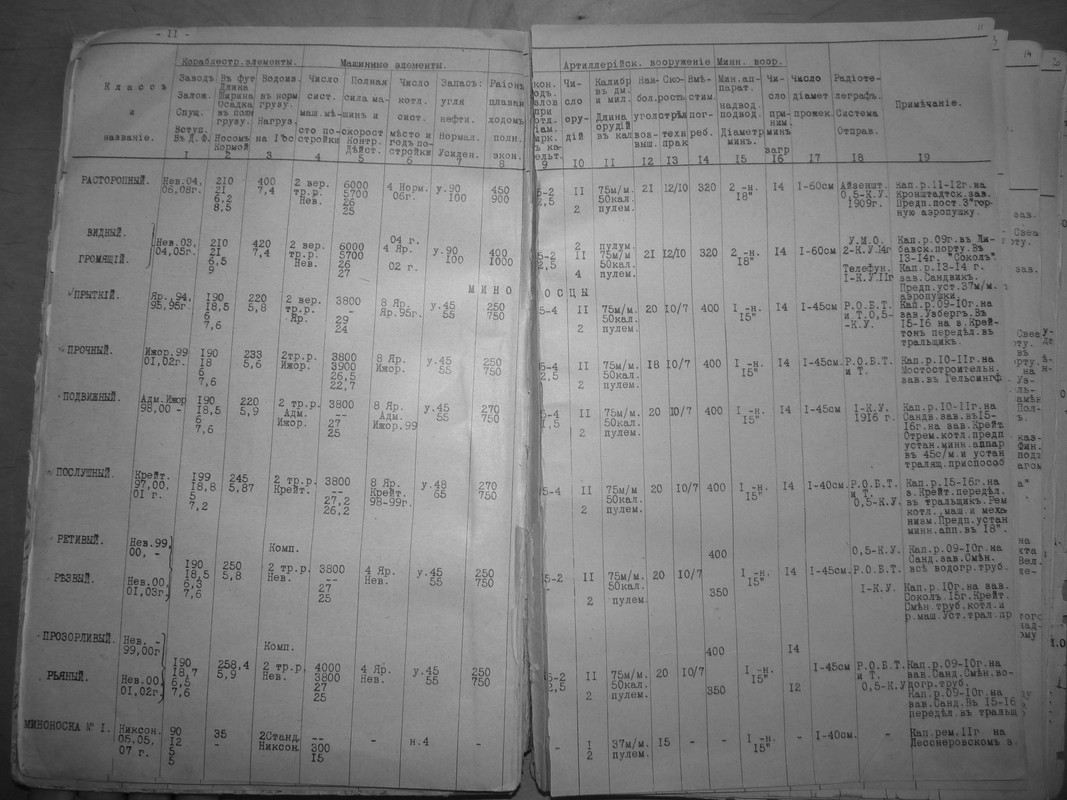 - 11 -
11
Кораблестр. элементы. Машинные элементы. Артиллерійск. вооруженіе Минн. воор.
Классъ
и
названіе.
Заводъ
Залож.
Спущ.
Вступ.
Въ Д.Ф.
1
Въ фут
Длина
Ширина
Осадка
въ полн
грузу.
Носомъ
Кормой
2
Водоизм.
въ норм
грузу.
Нагруз.
на 1"ос
3
Число
сист.
маш.мѣ-
сто по-
стройки
4
Полная
сила ма-
шинъ и
скорост
Контр.
Дѣйст.
5
Число
котл. и
сист.
мѣсто и
годъ по-
стройки
6
Запасъ:
угля
нефти.
Нормал.
Усилен.
7
Раіонъ
плаван
ходомъ
полн.
экон.
8
9
Чи-
сло
ору-
дій
10
Калибр
въ дм.
и мил.
Длина
орудій
въ кал.
11
Наи-
бол.
угол
воз-
выш.
12
Ско-
рость
стрѣл
техн
прак
13
Вмѣ-
стим.
пог-
реб.
14
Мин.ап-
парат.
надвод.
подвод.
Діаметр
минъ.
15
Чи-
сло
при-
ним.
минъ
загр
16
Число
діамет
прожек.
17
Радіоте-
леграфъ.
Система
Отправ.
18
Примѣчаніе.
19
РАСТОРОПНЫЙ.
Нев.04, 210 400 2 вер. 6000 4 Норм. у.90 450 5-2 11 75м/м. 21 12/10 320 2 -н. 14 1-60см Айзеншт. Кап.р.11-12г.на
06,08г. 21 7,4 тр.р. 5700 06г. 100 900 2,5 50кал. 18" 0,5-К.У. Кронштадтск.зав.
6.2 Нев. 26 2 пулем. 1909г. Предп.пост.3"гор-
8.5 25 ную аэропушку.
ВИДНЫЙ.
ГРОМЯЩІЙ.
Нев.03, 210 420 2 вер. 6000 04 г. у.90 400 5-2 2 пулум. 21 12/10 320 2 -н. 14 1-60см У.М.О. Кап.р.09г.въ Ли-
04,05г. 21 7,4 тр.р. 5700 4 Яр. 100 1000 2,5 11 75м/м 18" 2-К.У.14г бавск.порту.Въ
6.5 Нев. 26 02 г. 50кал. Телефун. 13-14г. "Соколъ".
9 27 4 пулем. 1-К.У.11г Кап.р.13-14 г.
зав.Сандвик.
Предп.уст.37м/м.
аэропушки.
МИНО ОСЦЫ
ПРЫТКІЙ.
Яр.,94, 190 220 2 вер. 3800 8 Яр. у.45 250 5-4 11 75м/м. 20 10/7 400 1 -н. 14 1-45см Р.О.Б.Т. Кап.р.09-10г.на
95,95г. 18,5 5,8 тр.р. - Яр.95г. 55 750 50кал. 15" и Т.0,5- зав.Узбергъ.Въ
6 Яр. 29 2 пулем. -К.У. 15-16 на з.Крей-
7,6 24 тонъ передѣл.въ
тральщикъ.
ПРОЧНЫЙ.
Ижор.99 190 233 2тр.р. 3800 8 Яр. у.45 250 5-4 11 75м/м. 18 10/7 400 1 -н. 14 1-45см. Р.О.Б.Т Кап.р.10-11г.на
01,02г. 18 5,6 Ижор. 3900 Ижор. 55 750 2,5 50кал. 15" и Т. Мостостроительн.
6 26,5 2 пулем. зав.въ Гельсингф.
7,6 22,7
ПОДВИЖНЫЙ.
Адм.Ижор 190 220 2 тр.р. 3800 8 Яр. у.45 270 5-4 11 75м/м. 20 10/7 400 1 -н. 14 1-45см 1-К.У. Кап.р.10-11г.на
98,00 - 18,5 5,9 Адм. -- Адм. 55 750 1,5 50кал. 15" 1916 г. Сандв.зав.въ15-
6 Ижор. 27 Ижор.99 2 пулем. 16г.на зав.Крейт.
7,6 25 Отрем.котл.предп
устан.минн.аппар
въ 45с/м.и устан
тралящ.приспособ
ПОСЛУШНЫЙ.
Крейт. 199 245 2 тр.р. 3800 8 Яр. у.48 270 5-4 11 75м/м 20 10/7 400 1 -н. 14 1-40см. Р.О.Б.Т Кап.р.15-16г.на
97,00, 18,8 5,87 Крейт. -- Крейт. 65 750 50кал. 15" и Т. з.Крейт.передѣл.
01 г. 5 27,2 98-99г. 2 пулем. 0,5-К.У. въ тральщикъ.Рем
7,2 26,2 котл.,маш.и меха
низм.Предп.устан
минн.апп.въ 18".
РЕТИВЫЙ.
Нев.99, Комп. 400 0,5-К.У. Кап.р.09-10г.на
00, - Санд.зав.Смѣн.
РѢЗВЫЙ.
190 250 2 тр.р. 3800 4 Яр. у.45 250 5-2 11 75м/м. 20 10/7 1 -н. 14 1-45см. Р.О.Б.Т. всѣ водогр.труб.
Нев.00, 18,5 5,8 Нев. -- Нев. 55 750 50кал. 350 15" 1-К.У. Кап.р.10г.на зав.
01,03г. 6,3 27 2 пулем. Соколъ.15г.Крейт.
7,6 25 Смѣн.труб.котл.и
р.маш.Уст.трал.пр
ПРОЗОРЛИВЫЙ.
Нев. - Комп. 400 14
99,00г
РЬЯНЫЙ.
190 258,4 2 тр.р. 4000 4 Яр. у.45 250 5-2 11 75м/м. 20 10/7 1 -н. 1-45см Р.О.Б.Т. Кап.р.09-10г.на
Нев.00, 18,7 5,9 Нев. 3800 Нев. 55 750 2,5 50кал. 350 15" 12 и Т. зав.Санд.Смѣн.во-
01,02г. 6,5 27 2 пулем. 0,5-К.У. догр.труб.
7,6 25 Кап.р.09-10г.на
зав.Санд.Въ 15-16
передѣл.въ тральщ
МИНОНОСКА № 1.
Никсон. 90 35 2Станд. -- - н.4 - - 1 37м/м. 15 - - 1 -н. - 1-40см. - Кап.рем.11г на
05,05, 12 - Никсон. 300 2 пулем. 15" Лесснеровском з.
07 г. 5 15
5